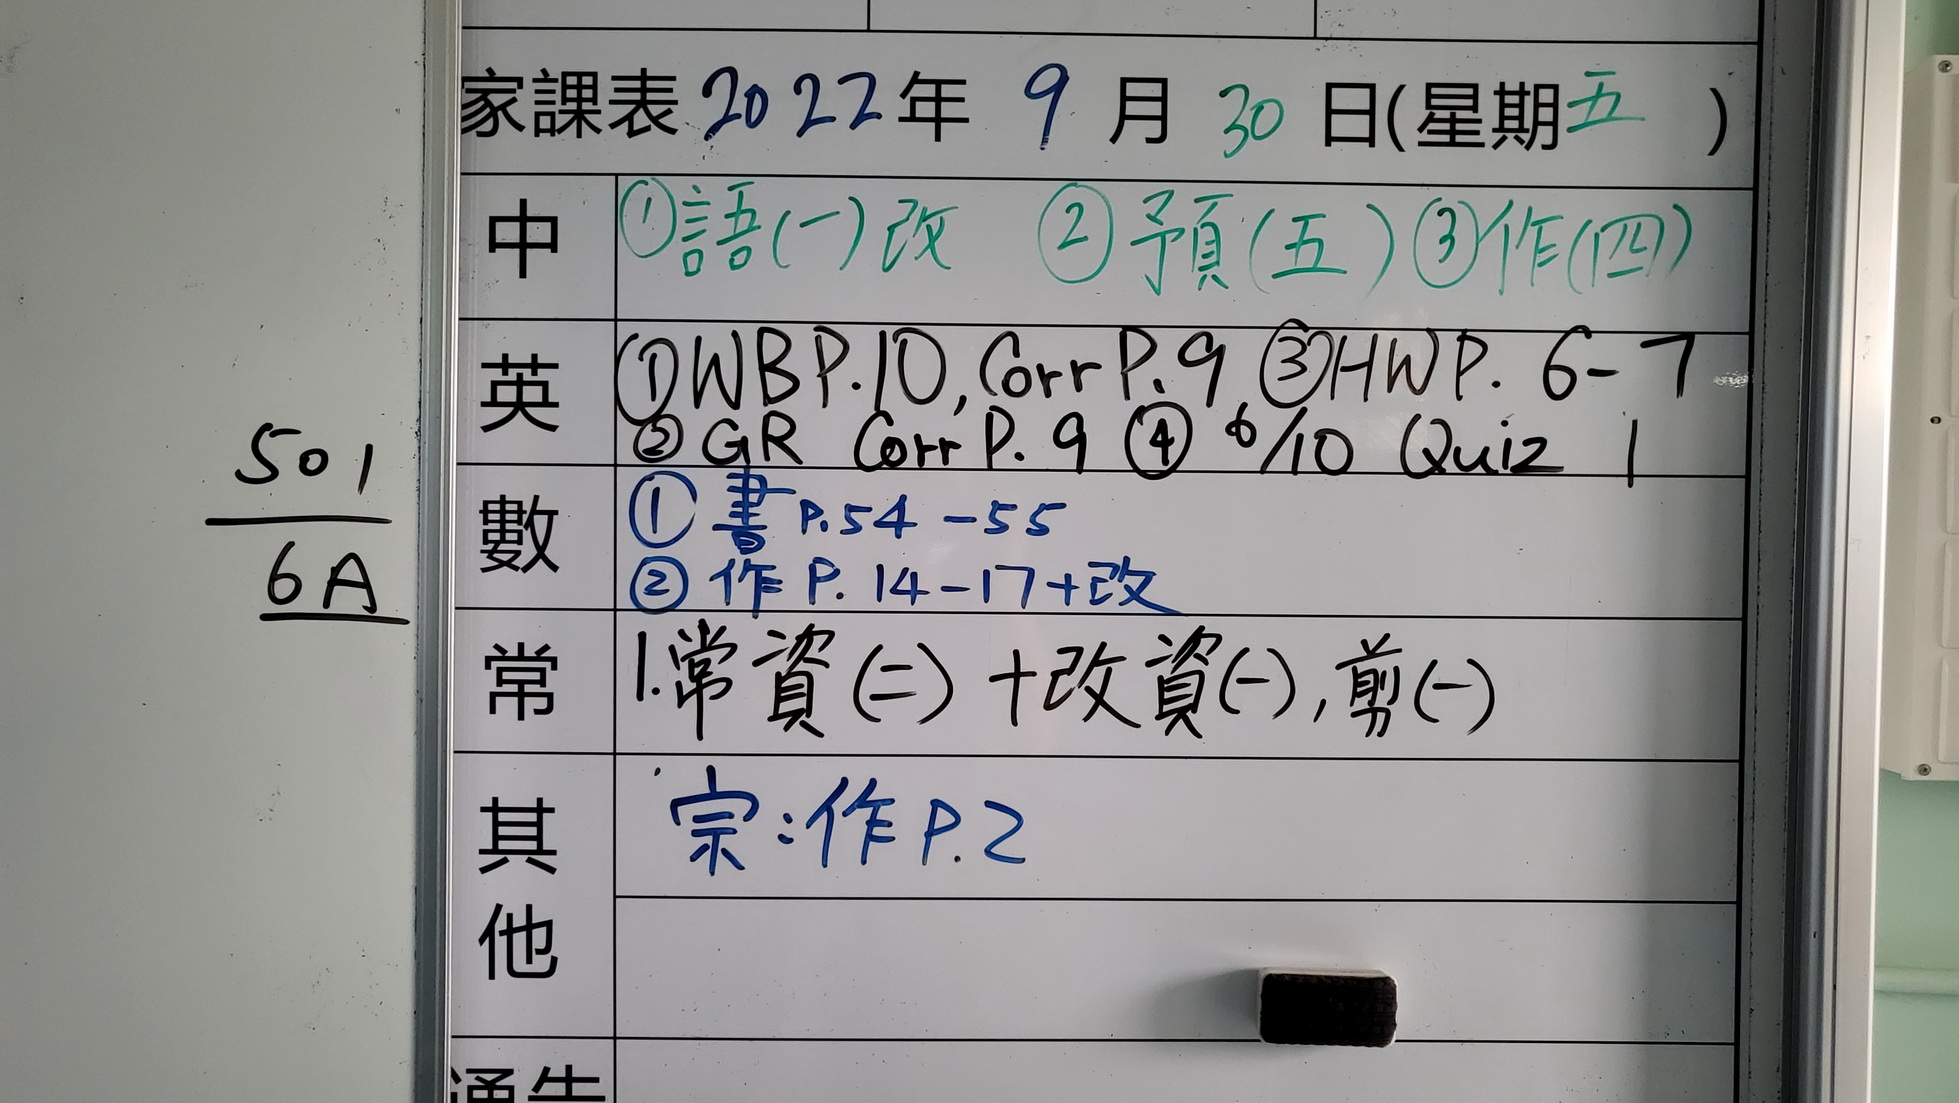 家課表 2022年 9月 30日(星期五)
中 ①語(一)改 ②預(五) ③作(四)
英 ①WB P.10, Corr P.9 ③HW P. 6-7
②GR Corr P.9 ④ 6/10 Quiz 1
數 ①書 P.54-55
②作 P. 14-17+改
常 1.常資(二)+改資(一),剪(一)
其他 宗:作 P.2
通告
501
6A